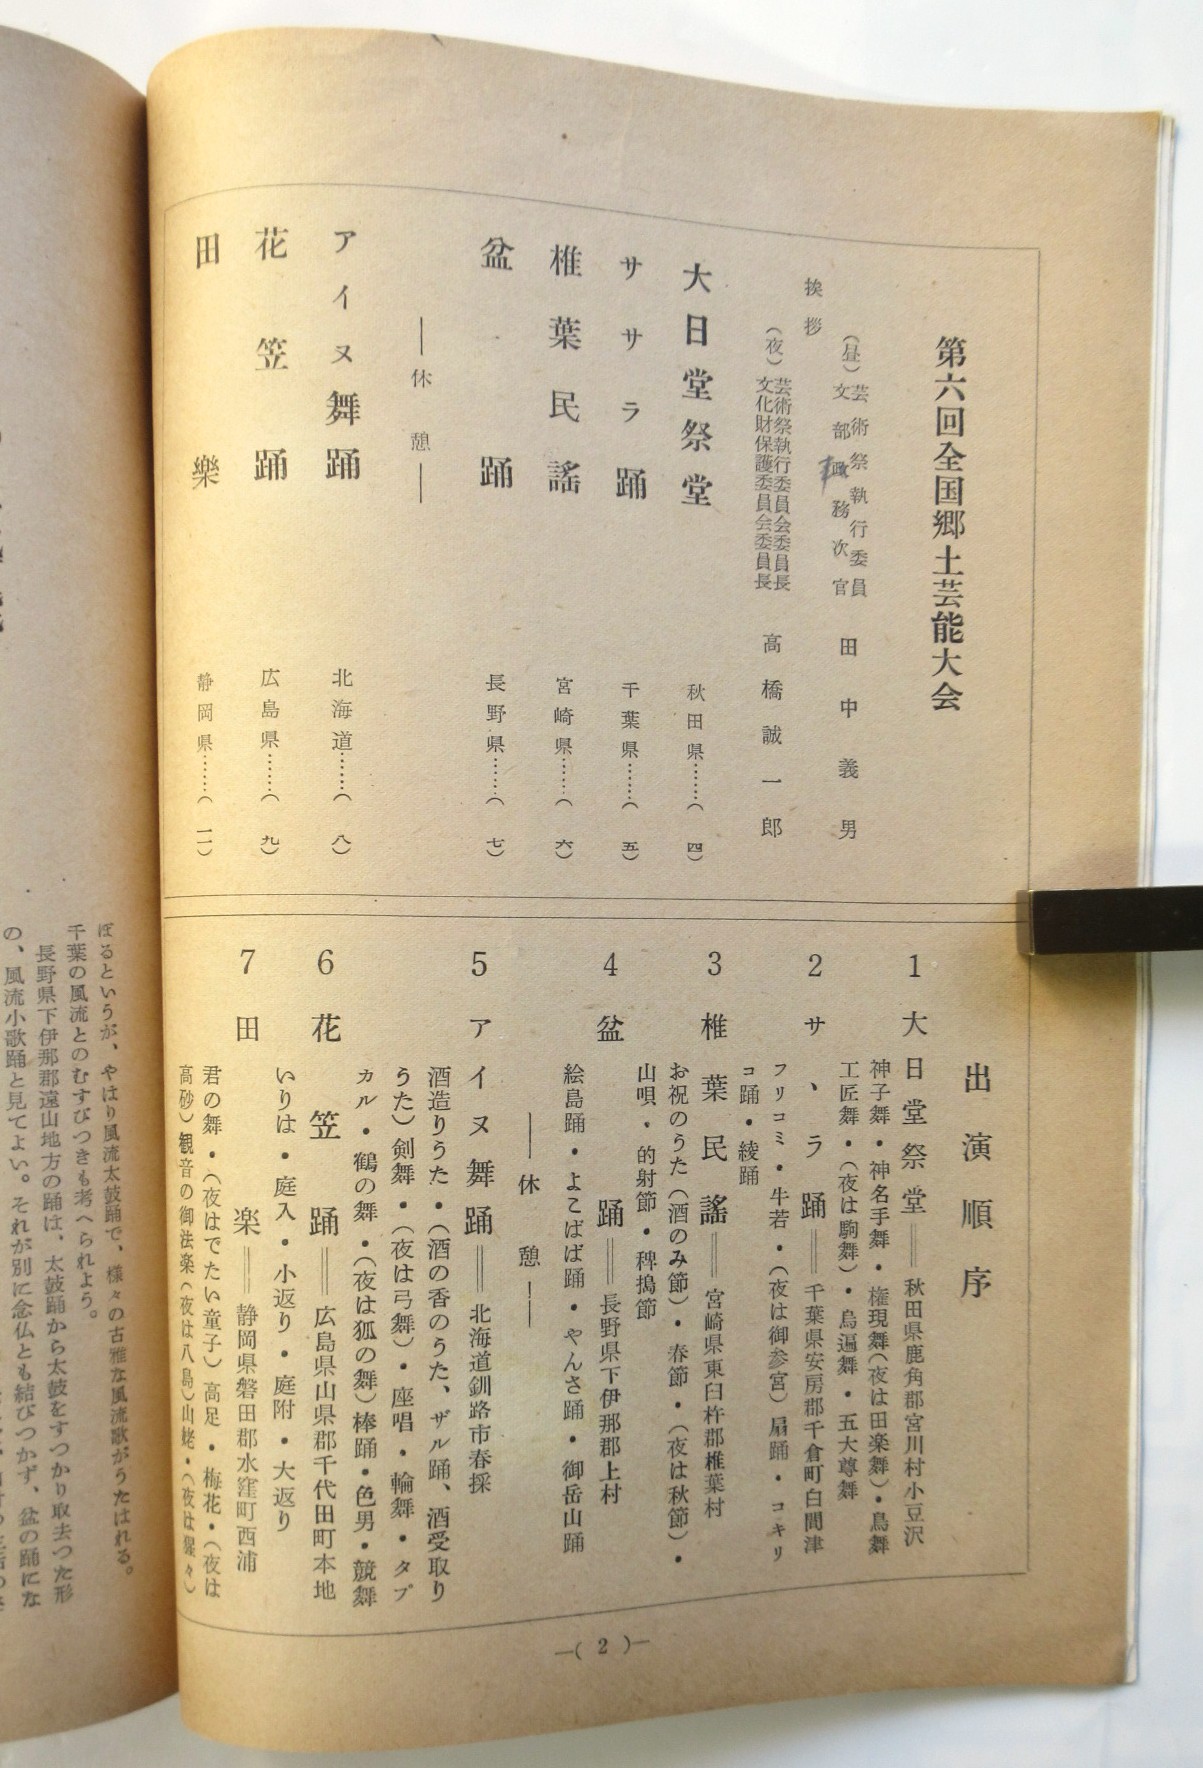 第六回全国郷土芸能大会
挨拶
(昼)芸術祭執行委員
文部政務次官
田中義男
(夜)芸術祭執行委員会委員長
文化財保護委員会委員長
高橋誠一郎
大日堂祭堂 秋田県……(四)
ササラ踊 千葉県……(五)
椎葉民謠 宮崎県……(六)
盆踊 長野県……(七)
―休憩―
アイヌ舞踊 北海道……(八)
花笠踊 広島県……(九)
田樂 静岡県……(一一)
出演順序
1 大日堂祭堂=秋田県鹿角郡宮川村小豆沢
神子舞・神名手舞・権現舞(夜は田楽舞)・鳥舞
工匠舞・(夜は駒舞)・烏遍舞・五大尊舞
2 サヽラ踊=千葉県安房郡千倉町白間津
フリコミ・牛若・(夜は御参宮)扇踊・コキリ
コ踊・綾踊
3 椎葉民謠=宮崎県東臼杵郡椎葉村
お祝のうた(酒のみ節)・春節・(夜は秋節)・
山唄・的射節・稗搗節
4 盆踊=長野県下伊那郡上村
絵島踊・よこばば踊・やんさ踊・御岳山踊
―休憩―
5 アイヌ舞踊=北海道釧路市春採
酒造りうた・(酒の香のうた、ザル踊、酒受取り
うた)剣舞・(夜は弓舞)・座唱・輪舞・タプ
カル・鶴の舞・(夜は狐の舞)棒踊・色男・競舞
6 花笠踊=広島県山県郡千代田町本地
いりは・庭入・小返り・庭附・大返り
7 田楽=静岡県磐田郡水窪町西浦
君の舞・(夜はでたい童子)高足・梅花・(夜は
高砂)観音の御法楽(夜は八島)山姥・(夜は猩々)
―( 2 )―
ぼるというが、やはり風流太鼓踊で、様々の古雅な風流歌がうたはれる。
千葉の風流とのむすびつきも考へられよう。
長野県下伊那郡遠山地方の踊は、太鼓踊から太鼓をすつかり取去つた形
の、風流小歌踊と見てよい。それが別に念仏とも結びつかず、盆の踊にな